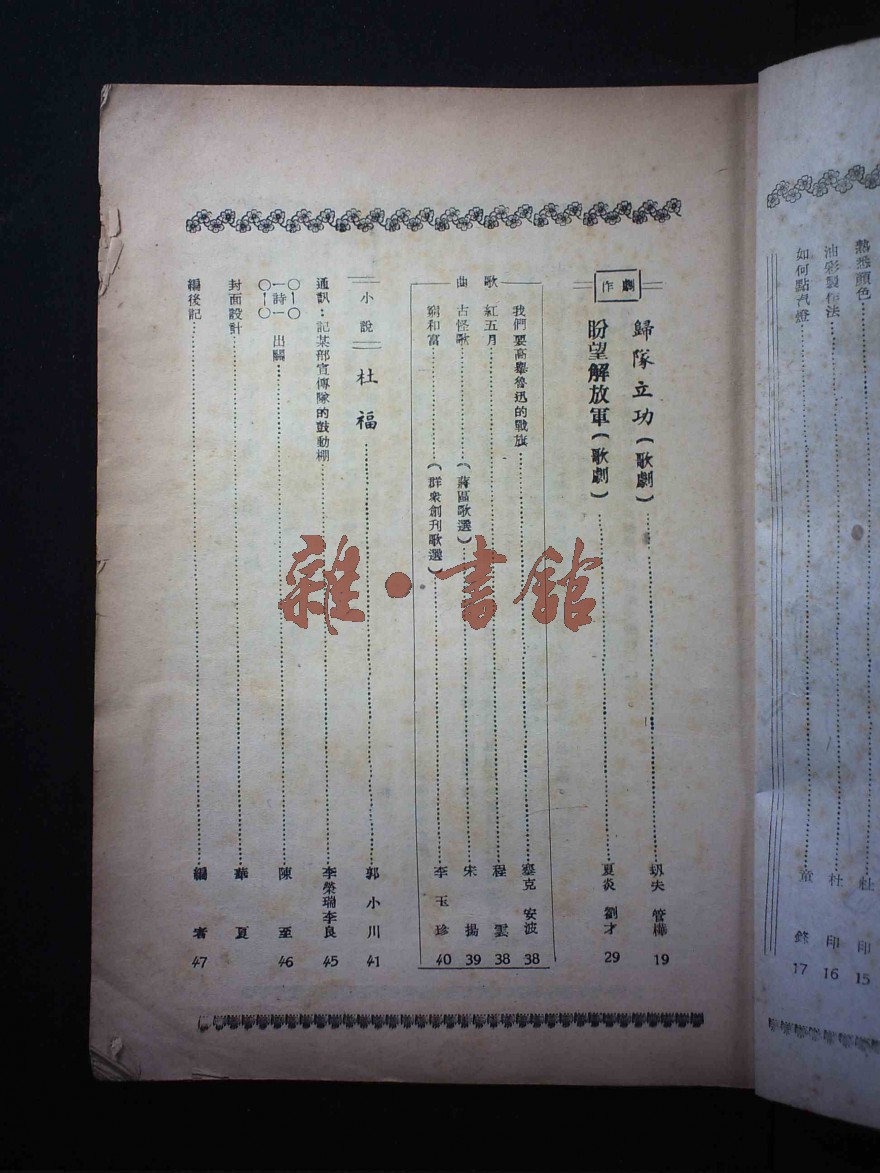 熱悉顏色……杜 印 15
油彩製作法……杜 印 16
如何點汽燈……童 鋒 17
劇作
歸隊立功（歌劇）……管樺 19
盼望解放軍（歌劇）……夏炎 劉才 29
歌曲
我們要高舉魯迅的戰旗……塞克 安波 38
紅五月……程 雲 38
古怪歌（蔣區歌選）……宋 揚 39
窮和富（群衆創刊歌選）……李玉珍 40
小說
杜福……郭小川 41
通訊：記某部宣傳隊的鼓動棚……李榮瑞李良 45
詩 出關……陳 至 46
封面設計……華 夏
編後記……編 者 47
雜·書館